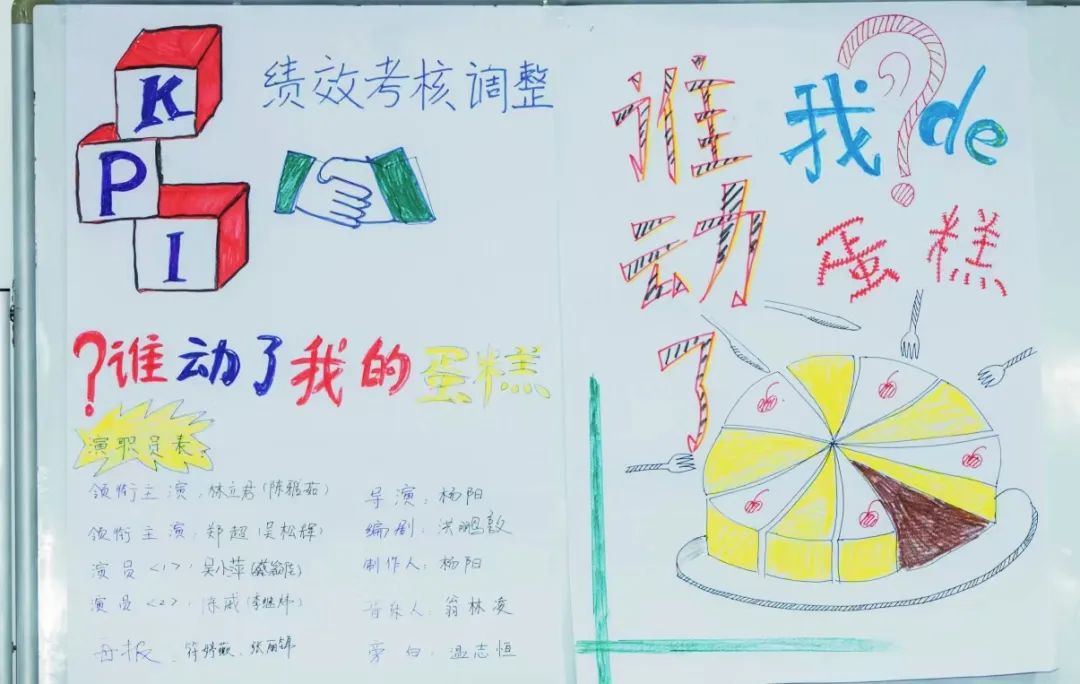 KPI
绩效考核调整
?谁动了我的蛋糕
演职员表
领衔主演:林立君(陈雅茹)
领衔主演:郑超(吴松辉)
演员<1>:吴小萍
演员<2>:
海报:
导演:杨阳
编剧:洪鹏毅
制作人:杨阳
音乐人:翁林凌
旁白:温志恒
谁动了
我de
?
蛋糕